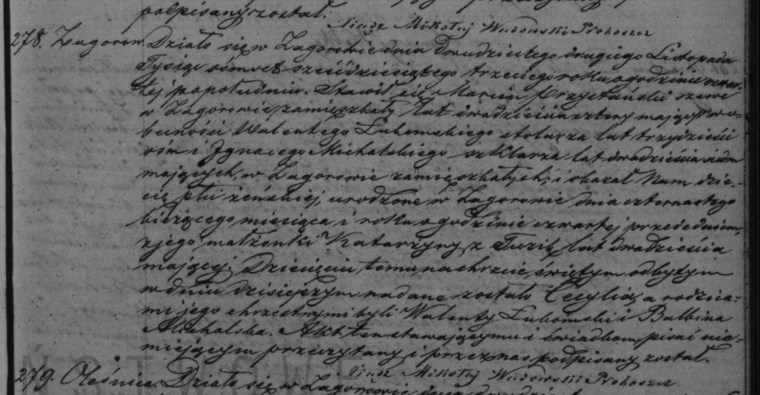 podpisany został.
Xiądz Mikołaj Wadowski Proboszcz
278. Zagorów. Działo się w Zagorowie dnia dwudziestego drugiego Listopada
Tysiąc ośmset sześćdziesiątego trzeciego roku o godzinie czwar-
tej popołudniu. Stawił się Maryan szewc
w Zagorowie zamieszkały lat dwadzieścia cztery mający w o-
becności Walentego Lubomskiego stolarza lat trzydzieści
ośm i Ignacego Michalskiego szklarza lat dwadzieścia siedm
mających, w Zagorowie zamieszkałych, i okazał Nam dzie-
cię płci żeńskiej, urodzone w Zagorowie dnia czternastego
bieżącego miesiąca i roku o godzinie czwartej przededniem,
z jego małżonki Katarzyny z lat dwadzieścia
mającej. Dziecięciu temu na chrzcie świętym odbytym
w dniu dzisiejszym nadane zostało Cecylia, a rodzica-
mi jego chrzestnymi byli Walenty Lubomski i Balbina
Michalska. Akt ten stawającemu i świadkom pisać nie-
umiejącym przeczytany i przez nas podpisany został.
Xiądz Mikołaj Wadowski Proboszcz
279. Oleśnica. Działo się w Zagorowie dnia